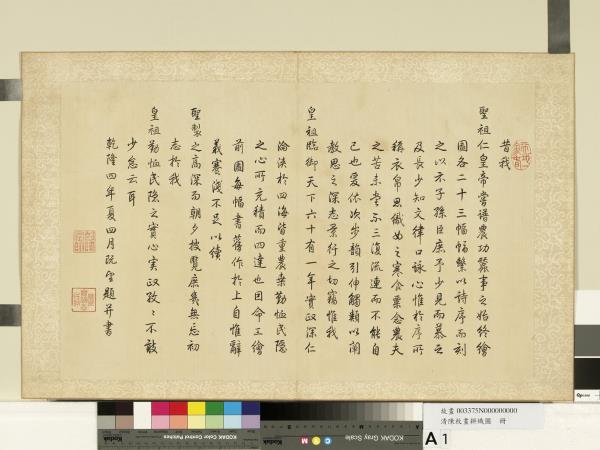 昔我
聖祖仁皇帝嘗譜農功蠶事之始終繪
圖各二十三幅幅繫以詩序而刻
之以示子孫臣庶予少見而慕之
及長少知文律口詠心惟於序所
稱衣帛思織女之寒食粟念農夫
之苦未嘗不三復流連而不能自
已也爰依次步韻引伸觸類以闡
敷思之深志景行之切竊惟我
皇祖臨御天下六十有一年實政深仁
淪浹於四海皆重農桑勤恤民隱
之心所充積而四達也因命工繪
前圖每幅書舊作於上自惟辭
義蹇淺不足以續
聖製之高深而朝夕披覽庶幾無忘初
志於我
皇祖勤恤民隱之實心實政孜孜不敢
少怠云耳
乾隆四年夏四月既望題并書
故畫 003375N000000000
清陳枚畫耕織圖 冊
A 1
KODAK Color Control Patches
KODAK Gray Scale
Kodak
C Y M